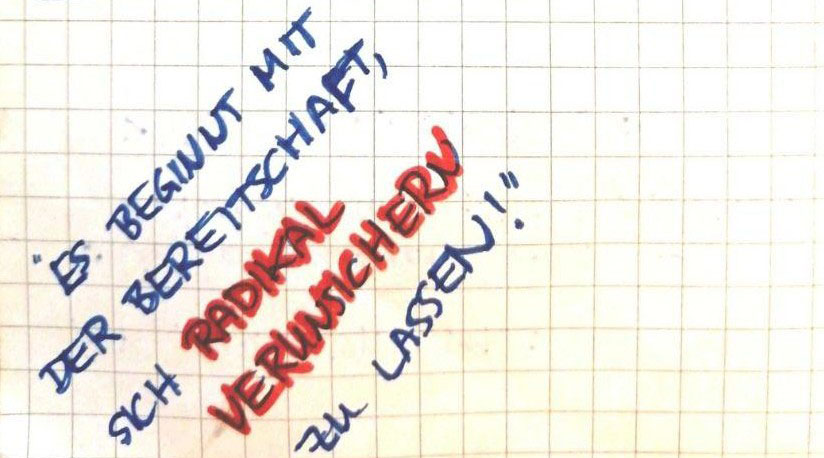 "ES BEGINNT MIT
DER BEREITSCHAFT,
SICH RADIKAL
VERUNSICHERN
ZU LASSEN!"